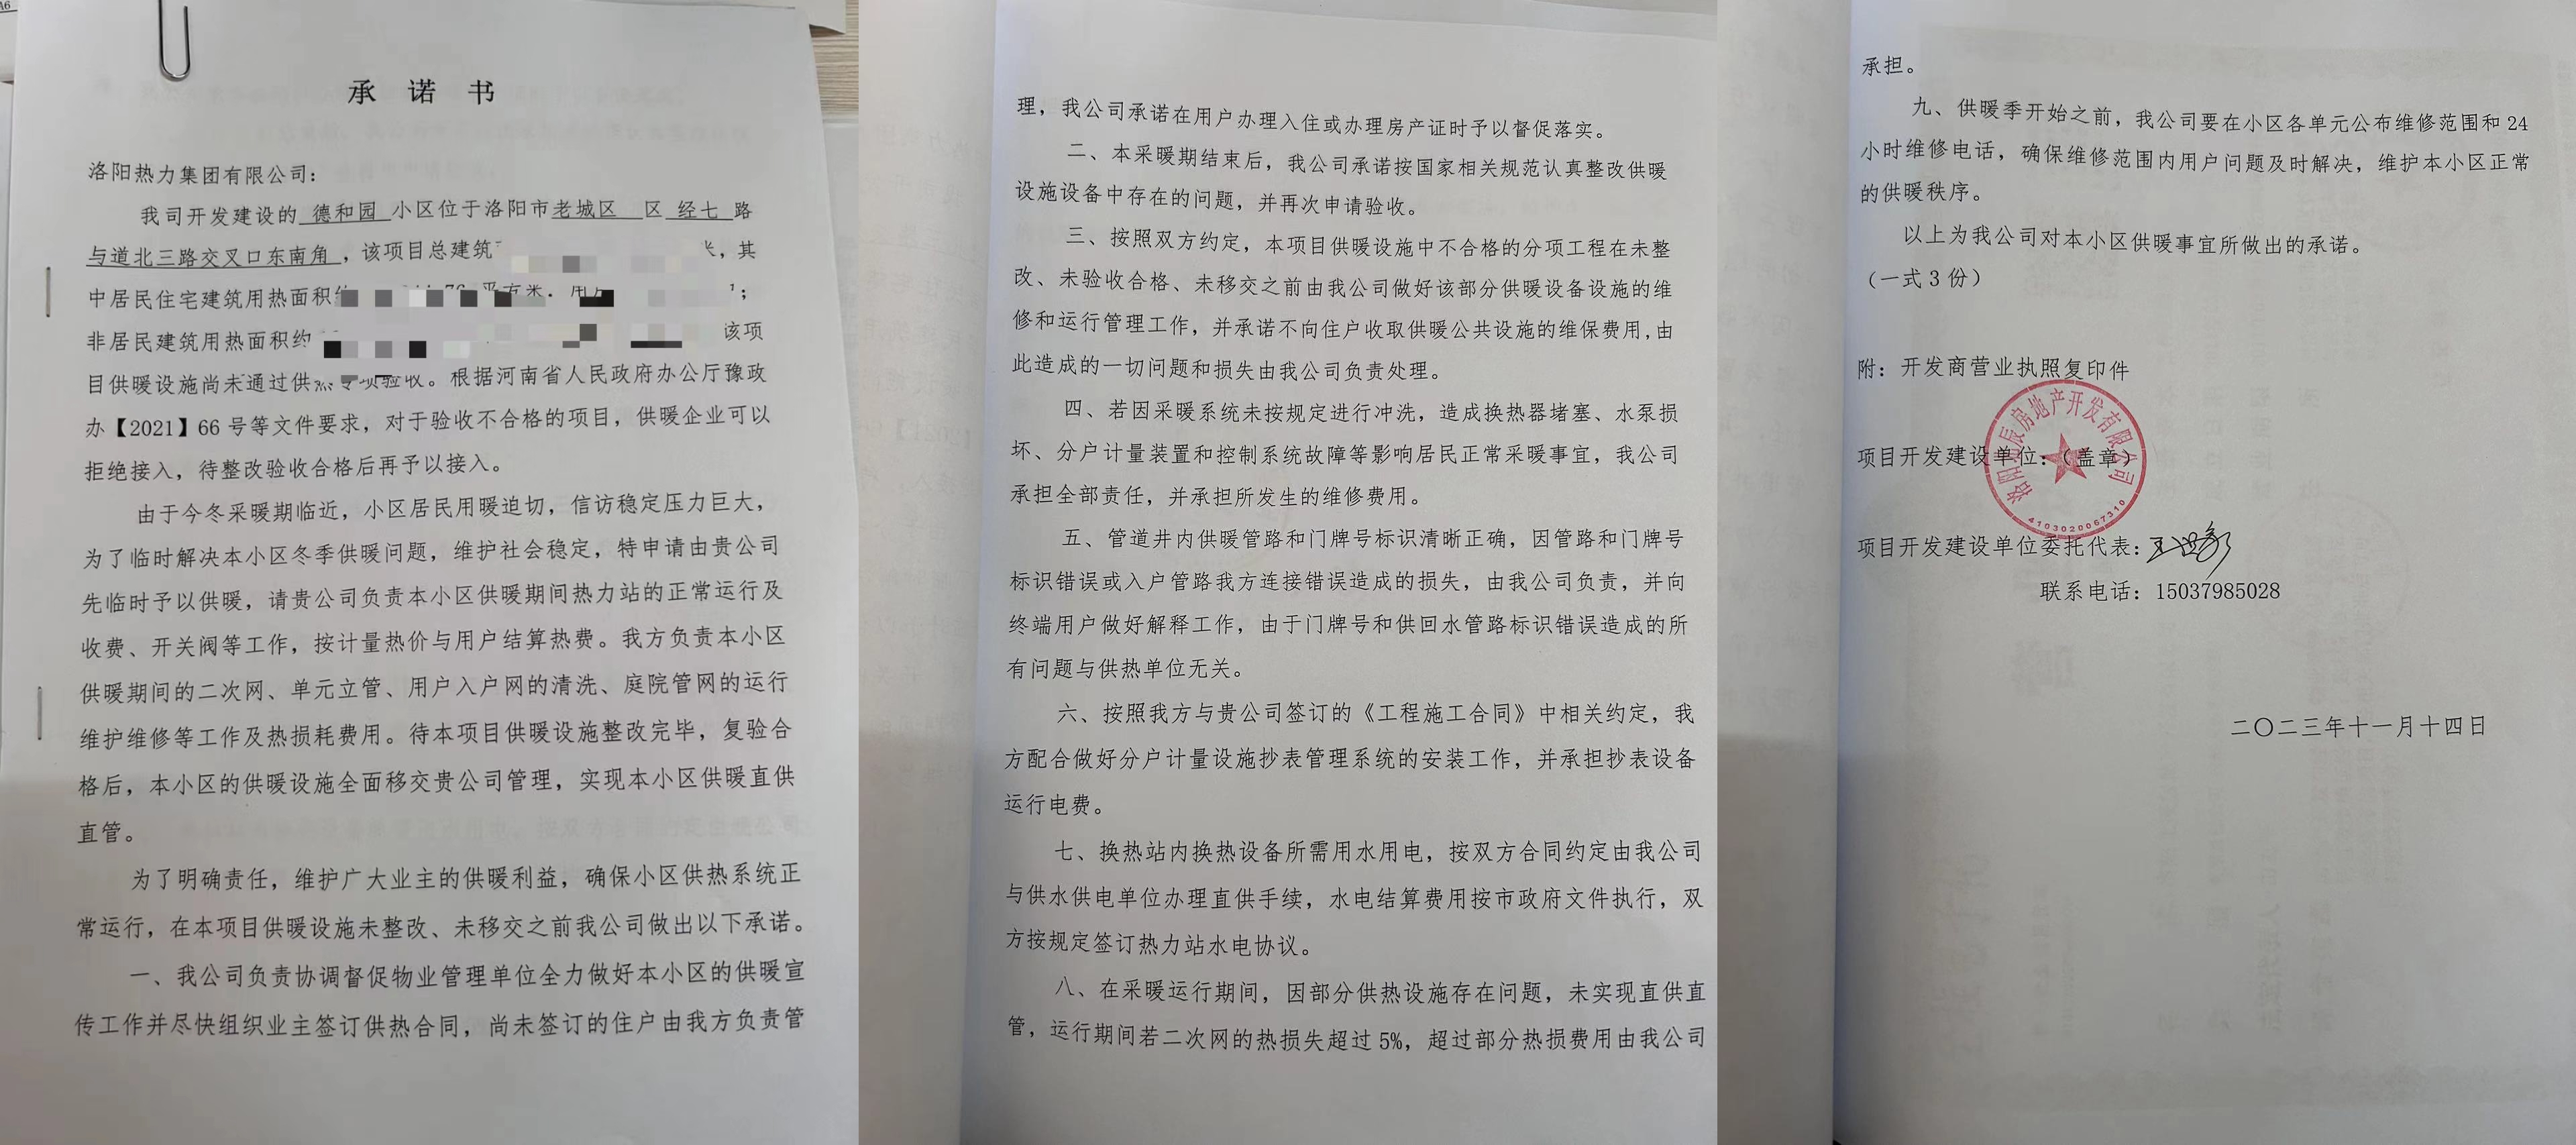 承诺书
洛阳热力集团有限公司：
我司开发建设的 德和园 小区位于洛阳市老城区 区 经七 路
与道北三路交叉口东南角，该项目总建筑 米，其
中居民住宅建筑用热面积 平方米．用户 ；
非居民建筑用热面积约 该项
目供暖设施尚未通过供热专项验收。根据河南省人民政府办公厅豫政
办【2021】66 号等文件要求，对于验收不合格的项目，供暖企业可以
拒绝接入，待整改验收合格后再予以接入。
由于今冬采暖期临近，小区居民用暖迫切，信访稳定压力巨大，
为了临时解决本小区冬季供暖问题，维护社会稳定，特申请由贵公司
先临时予以供暖，请贵公司负责本小区供暖期间热力站的正常运行及
收费、开关阀等工作，按计量热价与用户结算热费。我方负责本小区
供暖期间的二次网、单元立管、用户入户网的清洗、庭院管网的运行
维护维修等工作及热损耗费用。待本项目供暖设施整改完毕，复验合
格后，本小区的供暖设施全面移交贵公司管理，实现本小区供暖直供
直管。
为了明确责任，维护广大业主的供暖利益，确保小区供热系统正
常运行，在本项目供暖设施未整改、未移交之前我公司做出以下承诺。
一、我公司负责协调督促物业管理单位全力做好本小区的供暖宣
传工作并尽快组织业主签订供热合同，尚未签订的住户由我方负责管
理，我公司承诺在用户办理入住或办理房产证时予以督促落实。
二、本采暖期结束后，我公司承诺按国家相关规范认真整改供暖
设施设备中存在的问题，并再次申请验收。
三、按照双方约定，本项目供暖设施中不合格的分项工程在未整
改、未验收合格、未移交之前由我公司做好该部分供暖设备设施的维
修和运行管理工作，并承诺不向住户收取供暖公共设施的维保费用,由
此造成的一切问题和损失由我公司负责处理。
四、若因采暖系统未按规定进行冲洗，造成换热器堵塞、水泵损
坏、分户计量装置和控制系统故障等影响居民正常采暖事宜，我公司
承担全部责任，并承担所发生的维修费用。
五、管道井内供暖管路和门牌号标识清晰正确，因管路和门牌号
标识错误或入户管路我方连接错误造成的损失，由我公司负责，并向
终端用户做好解释工作，由于门牌号和供回水管路标识错误造成的所
有问题与供热单位无关。
六、按照我方与贵公司签订的《工程施工合同》中相关约定，我
方配合做好分户计量设施抄表管理系统的安装工作，并承担抄表设备
运行电费。
七、换热站内换热设备所需用水用电，按双方合同约定由我公司
与供水供电单位办理直供手续，水电结算费用按市政府文件执行，双
方按规定签订热力站水电协议。
八、在采暖运行期间，因部分供热设施存在问题，未实现直供直
管，运行期间若二次网的热损失超过 5%，超过部分热损费用由我公司
承担。
九、供暖季开始之前，我公司要在小区各单元公布维修范围和 24
小时维修电话，确保维修范围内用户问题及时解决，维护本小区正常
的供暖秩序。
以上为我公司对本小区供暖事宜所做出的承诺。
（一式 3 份）
附：开发商营业执照复印件
项目开发建设单位：（盖章）
洛阳 辰房地产开发有限公司
4103020067310
项目开发建设单位委托代表：
联系电话：15037985028
二〇二三年十一月十四日